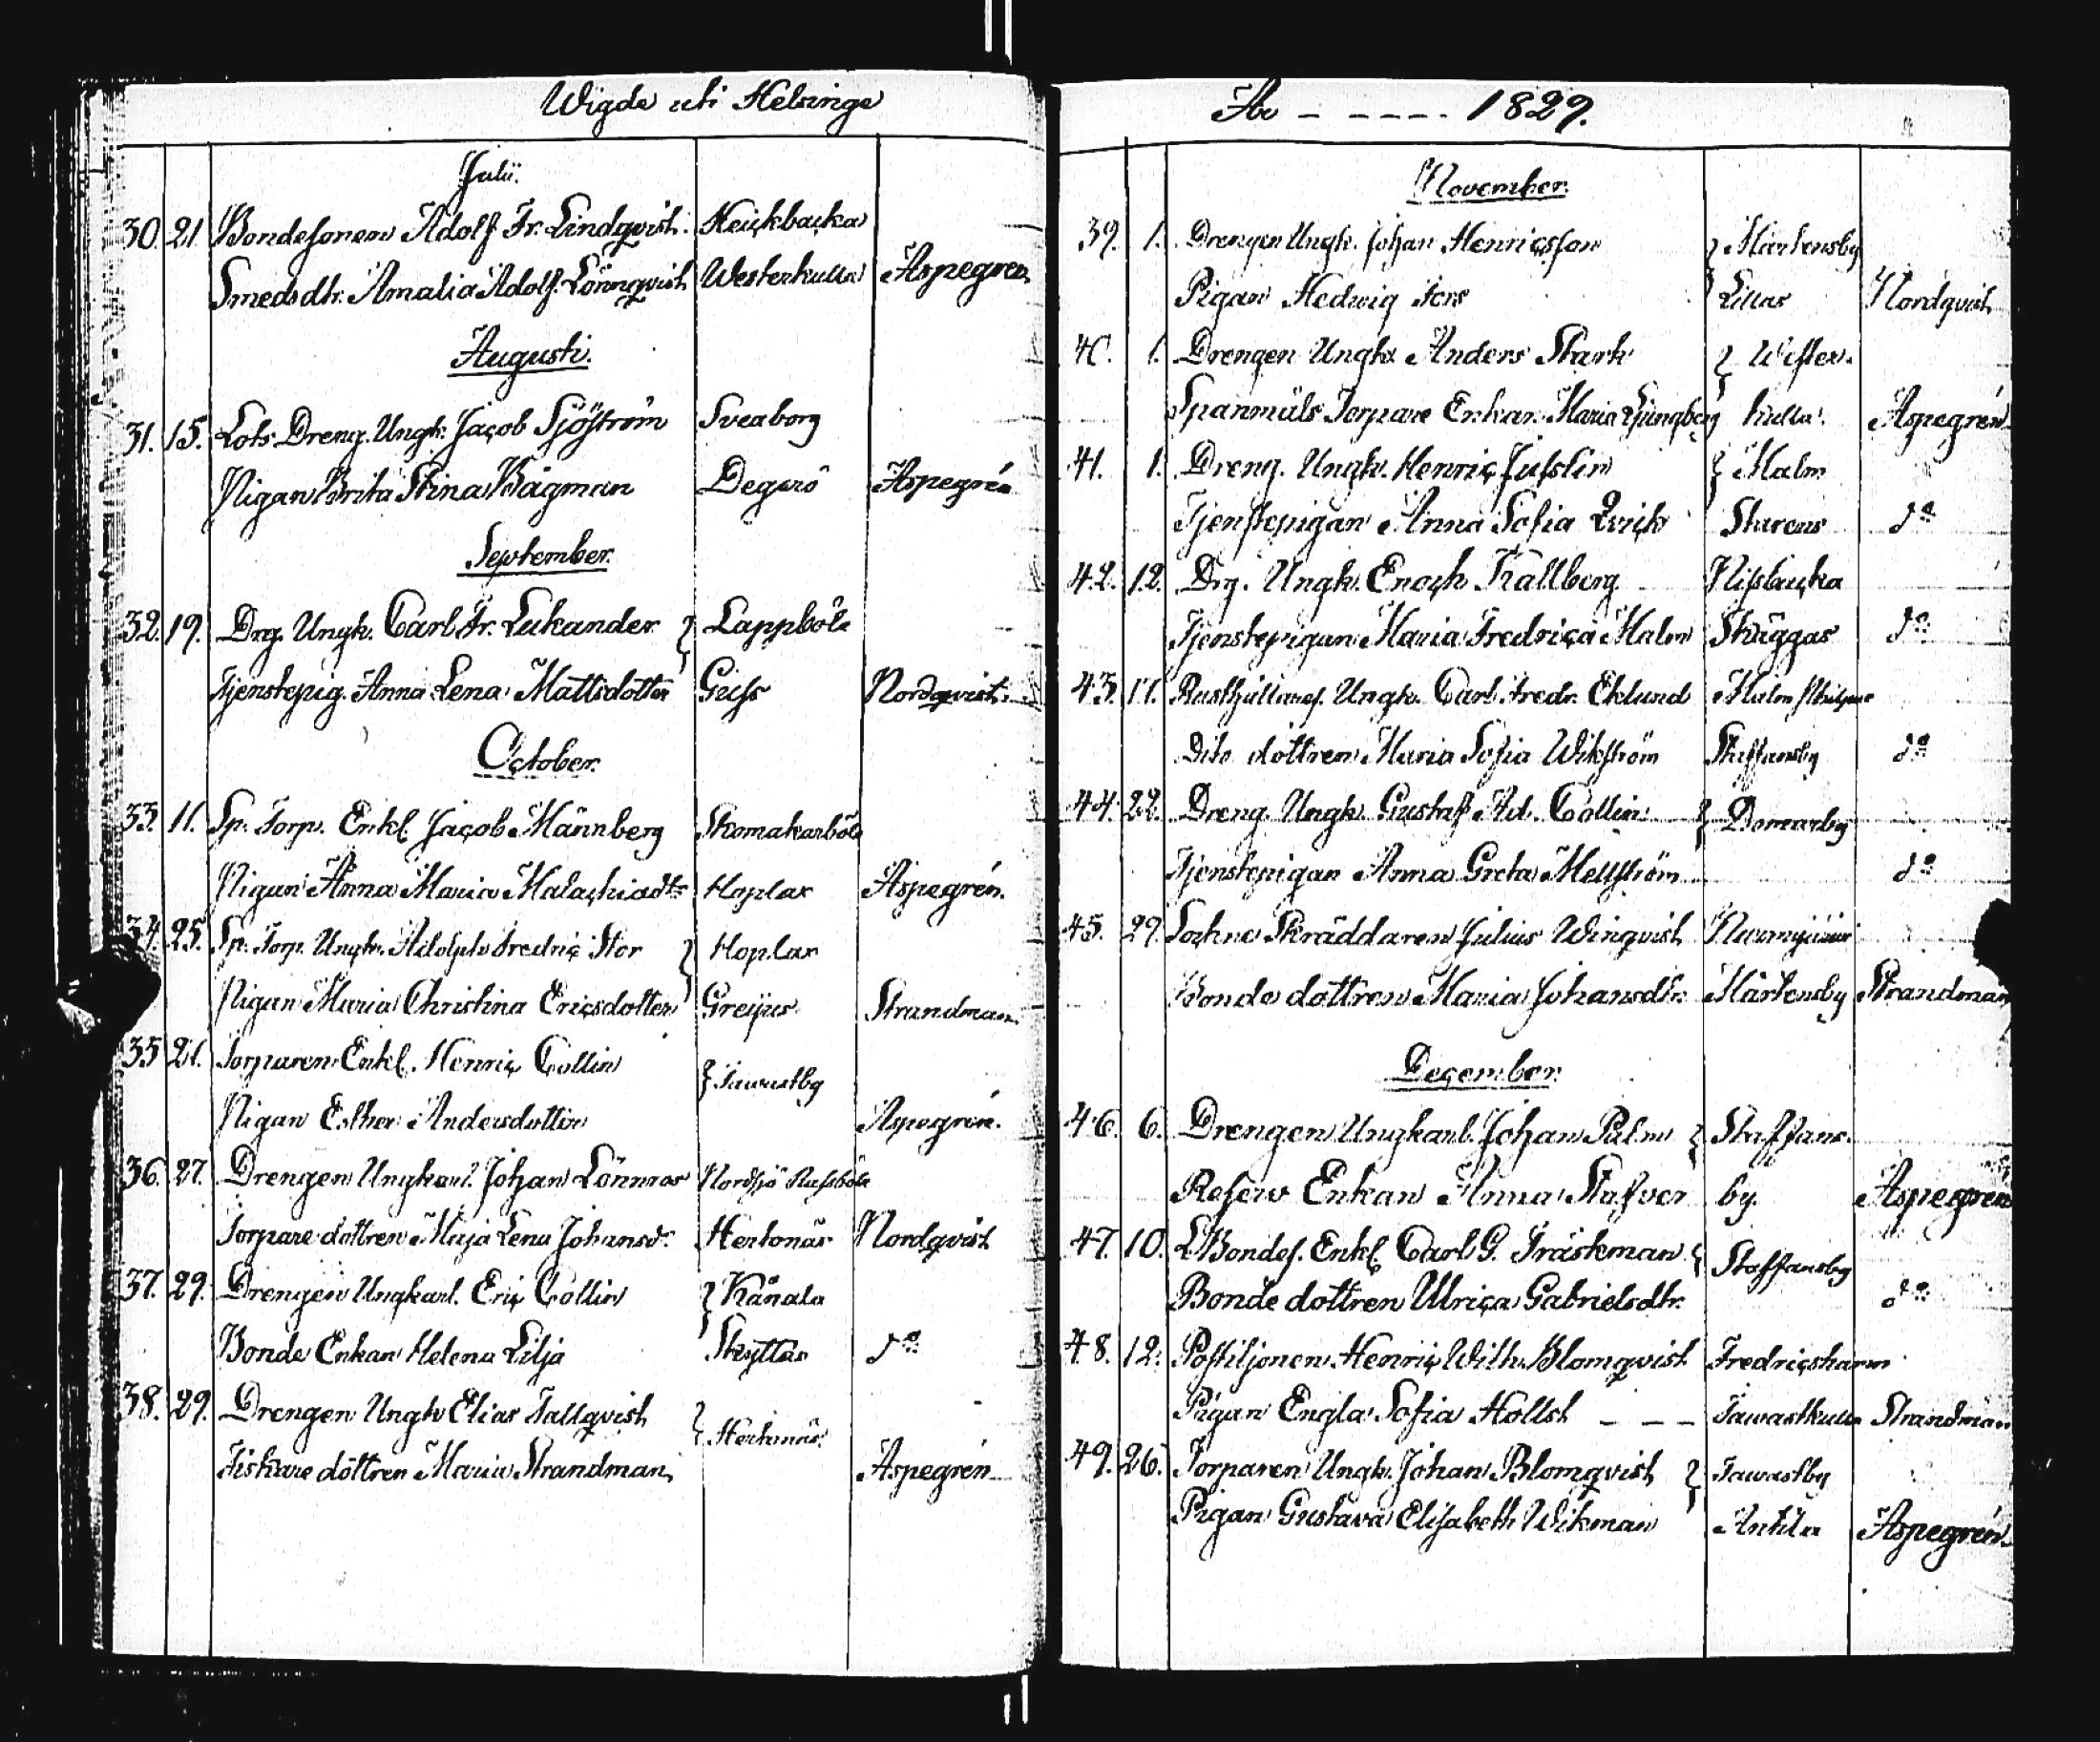 Wigde uti Helsinge
Julii.
30. 21. Bondesonen Adolf Fr. Lindqvist. Heickbacka
Smedsdtr. Amalia Adolf. Lönnqvist Westerkulla Aspegren
Augusti.
31. 15. Lots Dreng. Ungk. Jacob Sjöström Sveaborg
Pigan Brita Stina Bågman Degerö Aspegrén
September.
32. 19. Drg. Ungk. Carl Fr. Lukander } Lappböle
Tjenstepig. Anna Lena Mattsdotter Nordqvist.
October.
33. 11. Sp. Torp. Enkl. Jacob Männberg Skomakarböle
Pigan Anna Maria Malachiadtr Hoplax Aspegrén.
34. 25. Sp. Torp. Ungk. Adolph Fredric Stor } Hoplax
Pigan Maria Christina Ericsdotter Greijus Strandman.
35 Torparen Enkl. Henric Collin } Tawastby
Pigan Esther Andersdotter Aspegrén.
36. 27. Drengen Ungkarl. Johan Lönnros Nordsjö
Torpare dottren Maja Lena Johansd. Hertonäs Nordqvist
37. 29. Drengen Ungkarl. Eric Collin } Kånala
Bonde Enkan Helena Lilja Skyttas do
38. 29. Drengen Ungk Elias Tallqvist } Hertonäs.
Fiskare dottren Maria Strandman, Aspegrén
År - - - - - 1829.
November.
39. 1. Drengen Ungk. Johan Henricsson } Mårtensby
Pigan Hedwig Fors } Lillas Nordqvist
40. 1. Drengen Ungk. Anders Stark } Wester-
Spanmåls Torpare Enkan Maria Ljungberg kulla. Aspegrén
41. 1. Dreng. Ungk. Henric Juslin } Malm
Tjenstepigan Anna Sofia Qvick Starens do
42. 12. Drg. Ungk. Enoch Källberg Nissbacka
Tjenstepigan Maria Fredrica Malm Skäggas do
43. Rusthållares. Ungk. Carl Fredr. Eklund Malm
Dito dottren Maria Sofia Wikström Staffansby do
44. 22. Dreng. Ungk Gustaf Ad. Collin } Domarby
Tjenstepigan Anna Greta Mellström do
45. 29. Sockne Skräddaren Julius Winqvist Nurmijärvi
Bonde dottren Maria Johansdtr. Mårtensby Strandman
December.
46. 6. Drengen Ungkarl. Johan Palm } Staffans-
Reserv Enkan Anna Stafver by. Aspegrén
47. 10. Bondes. Enkl. Carl G. Träskman } Staffansby
Bonde dottren Ulrica Gabrielsdtr. do
48. 12. Postiljonen Henric Wilh. Blomqvist Fredricshamn
Pigan Engla Sofia Hollst - - - Tawastkulla Strandman
49. 26. Torparen Ungk. Johan Blomqvist } Tawastby
Pigan Gustava Elisabeth Wikman Anttila Aspegrén.